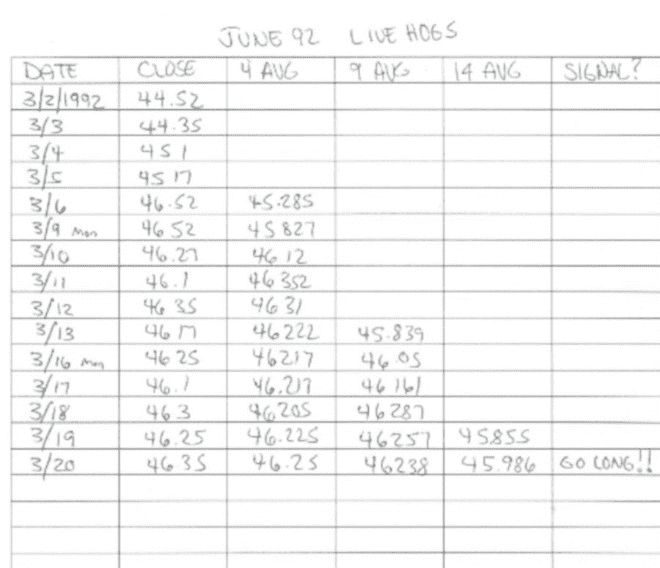 JUNE 92 LIVE HOGS
DATE CLOSE 4 AVG 9 AVG 14 AVG SIGNAL?
3/2/1992 44.52
3/3 44.35
3/4 45 1
3/5 45 17
3/6 46.52 45.285
3/9 Mon 46 52 45 827
3/10 46.27 46 12
3/11 46.1 46 352
3/12 46 35 46 31
3/13 46 17 46222 45.839
3/16 Mon 46 25 46217 46.05
3/17 46.1 46.217 46 161
3/18 46.3 46205 46287
3/19 46.25 46.225 46257 45855
3/20 46.35 46.25 46238 45.986 GO LONG!!